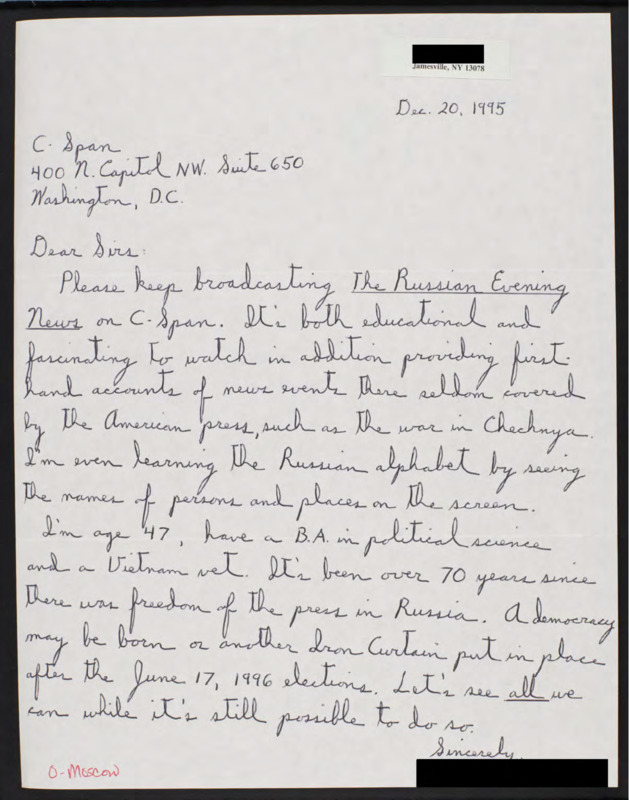 Jamesville, NY 13078
Dec. 20, 1995
C-Span
400 N. Capitol NW. Suite 650
Washington, D.C.
Dear Sirs:
Please keep broadcasting The Russian Evening
News on C-Span. It's both educational and
fascinating to watch in addition providing first-
hand accounts of news events there seldom covered
by the American press, such as the war in Chechnya.
I'm even learning the Russian alphabet by seeing
the names of persons and places on the screen.
I'm age 47, have a B.A. in political science
and a Vietnam vet. It's been over 70 years since
there was freedom of the press in Russia. A democracy
may be born or another Iron Curtain put in place
after the June 17, 1996 elections. Let's see all we
can while it's still possible to do so.
Sincerely,
O-Moscow